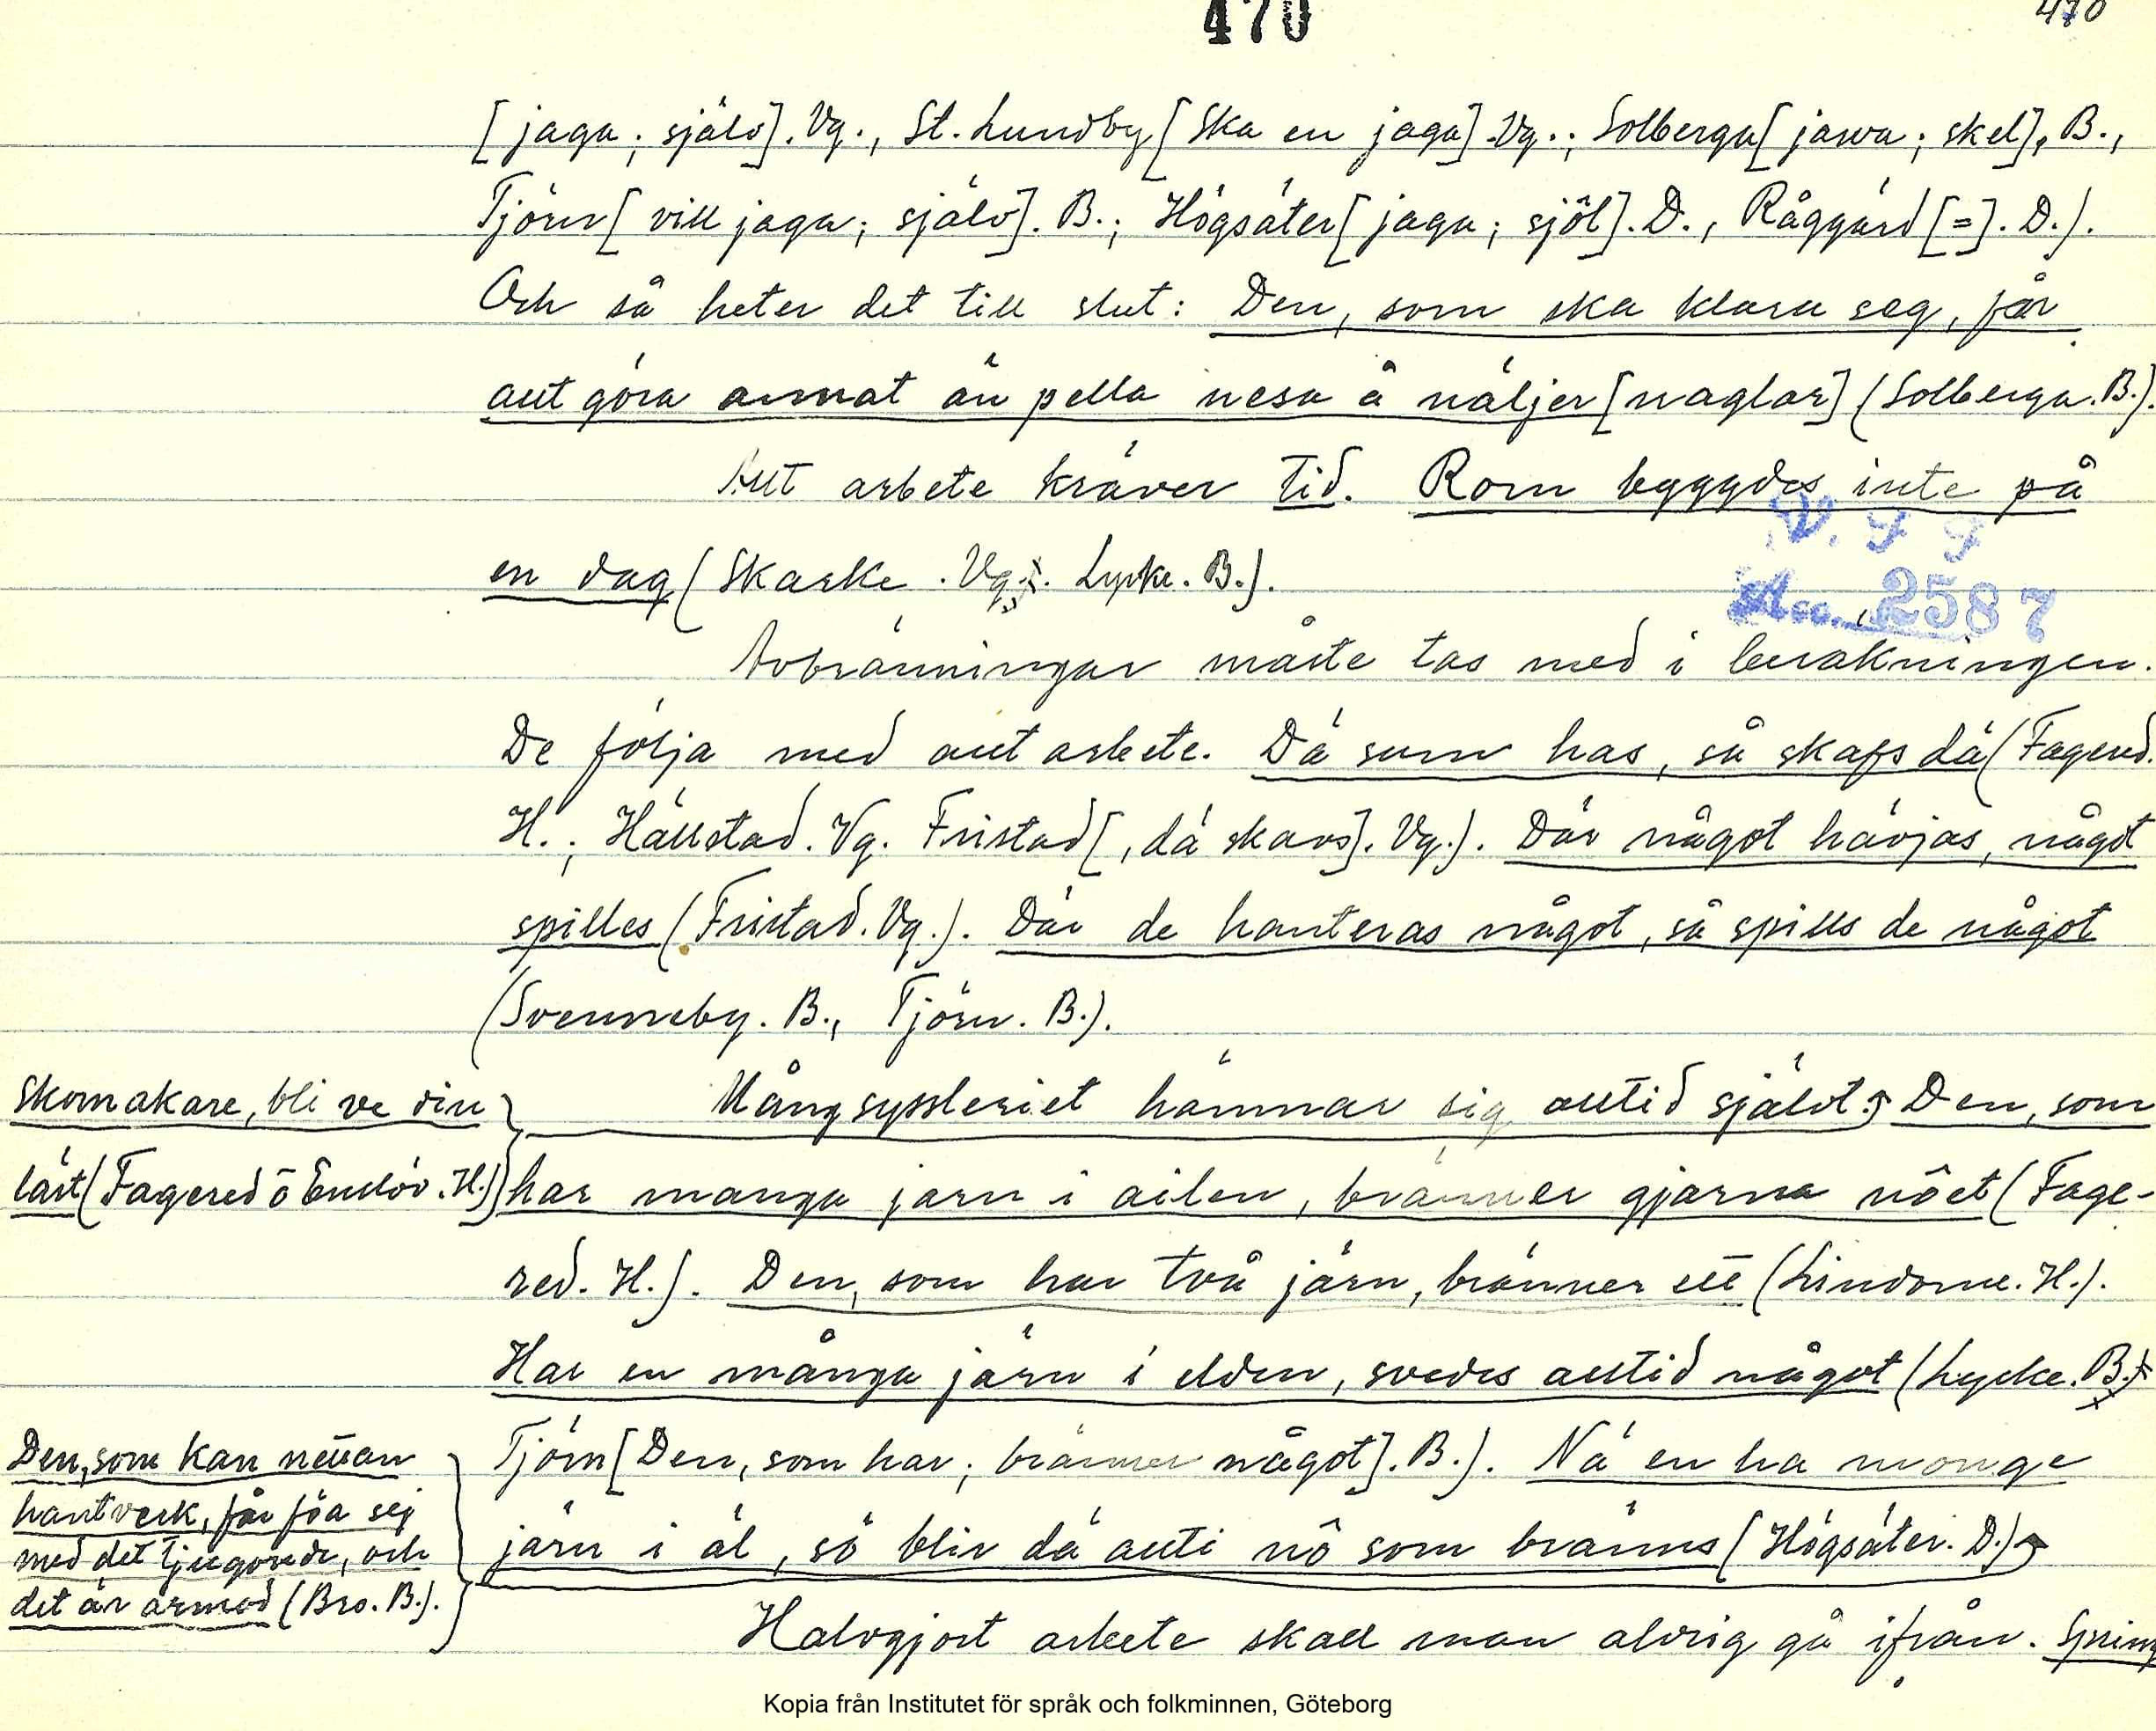 470
470
[jaga; själv]. Vg., St. Lundby [ska en jaga] Vg.; Solberga [jawa; skel], B.,
Tjörn [vill jaga; själv]. B.; Högsäter [jaga; sjöl]. D., Råggärd [=]. D.).
Och så heter det till slut: Den, som ska klara seg, får
allt göra annat än pella nesa å näljer [naglar] (Solberga. B.).
Allt arbete kräver tid. Rom byggdes inte på
V. F. F.
en dag (Skarke. Vg., Lycke. B.).
Acc. 2587
Avbränningar måste tas med i beräkningen.
De följa med allt arbete. Dä sum has, så skafs dä (Fagered.
H.; Hällstad. Vg. Fristad [, dä skavs]. Vg.). Där något hävjas, något
spilles (Fristad. Vg.). Där de hanteras något, så spills de något
(Svenneby. B., Tjörn. B.).
Mångsyssleriet hämnar sig alltid självt. Den, som
har manga jarn i ailen, bränner gjarna nôet (Fage-
red. H.). Den, som har två järn, bränner ett (Lindome. H.).
Har en många järn i elden, svedes alltid något (Lycke. B.;
Tjörn [Den, som har; bränner något]. B.). Nä en ha monge
järn i äl, sô blir dä allti nô som bränns (Högsäter. D.)
Halvgjort arbete skall man aldrig gå ifrån. Spring
Skomakare, bli ve din
läst (Fagered o Enslöv. H.)
Den, som kan nittan
hantverk, får föa sej
med det tjugonde, och
det är armod (Bro. B.).
Kopia från Institutet för språk och folkminnen, Göteborg